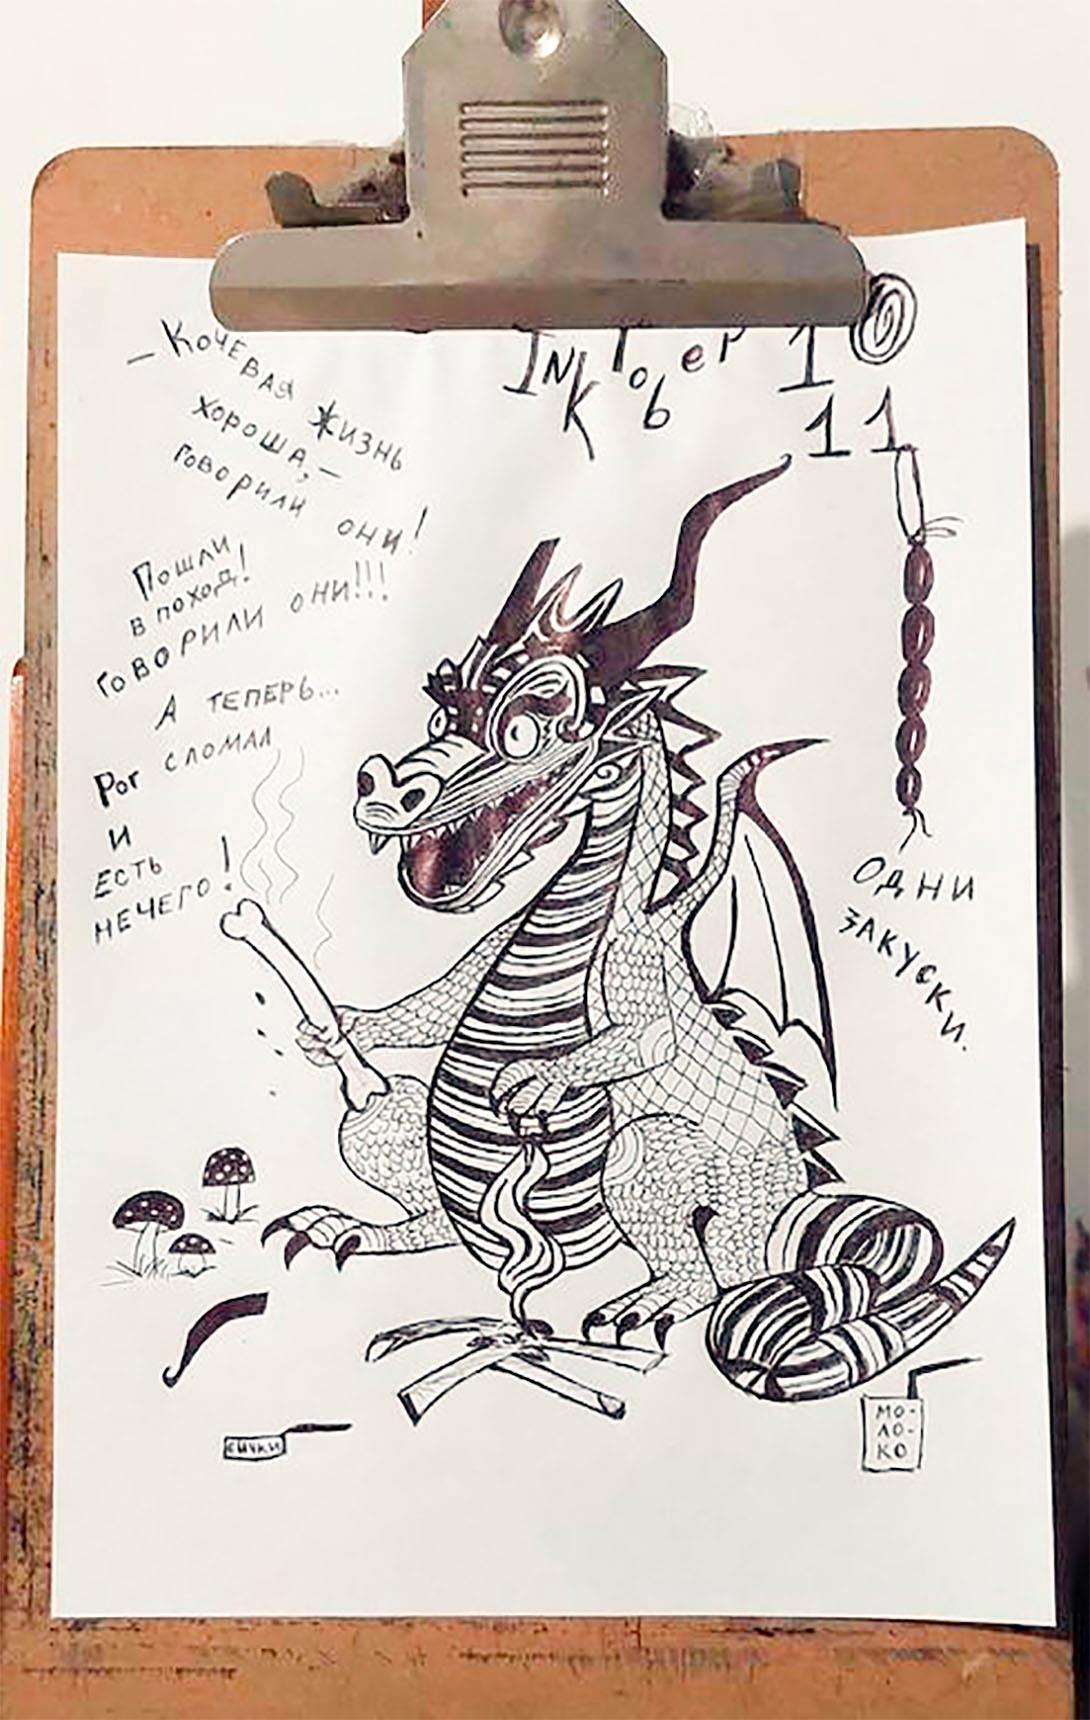 InkTober 10
11
— Кочевая жизнь
хороша, —
говорили они!
Пошли
в поход!
говорили они!!!
А теперь...
Рог сломал
и
есть
нечего!
одни
закуски.
спички
мо-
ло-
ко